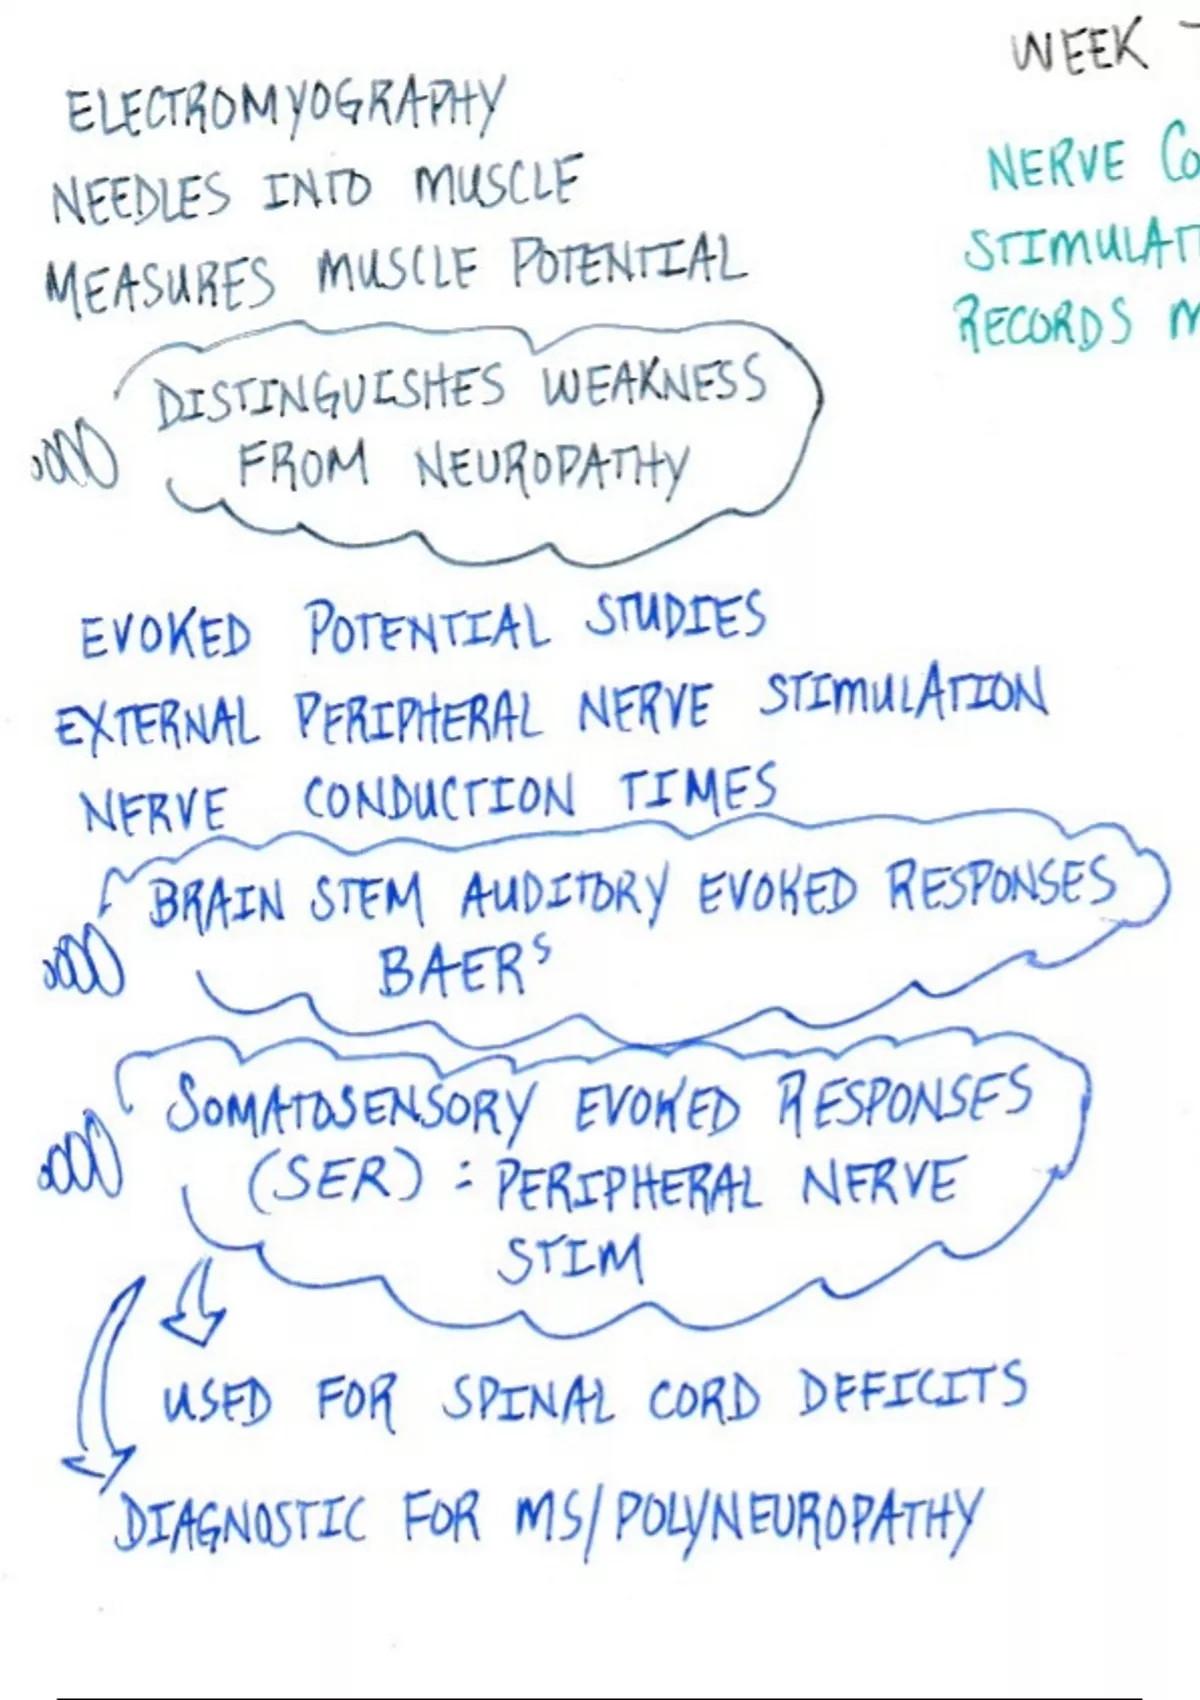 WEEK
ELECTROMYOGRAPHY
NEEDLES INTO MUSCLE
MEASURES MUSCLE POTENTIAL
DISTINGUISHES WEAKNESS
FROM NEUROPATHY
NERVE Co
STIMULAT
RECORDS M
EVOKED POTENTIAL STUDIES
EXTERNAL PERIPHERAL NERVE STIMULATION
NERVE CONDUCTION TIMES
BRAIN STEM AUDITORY EVOKED RESPONSES
BAERS
SOMATOSENSORY EVOKED RESPONSES
(SER) = PERIPHERAL NERVE
STIM
USED FOR SPINAL CORD DEFICITS
DIAGNOSTIC FOR MS/POLYNEUROPATHY